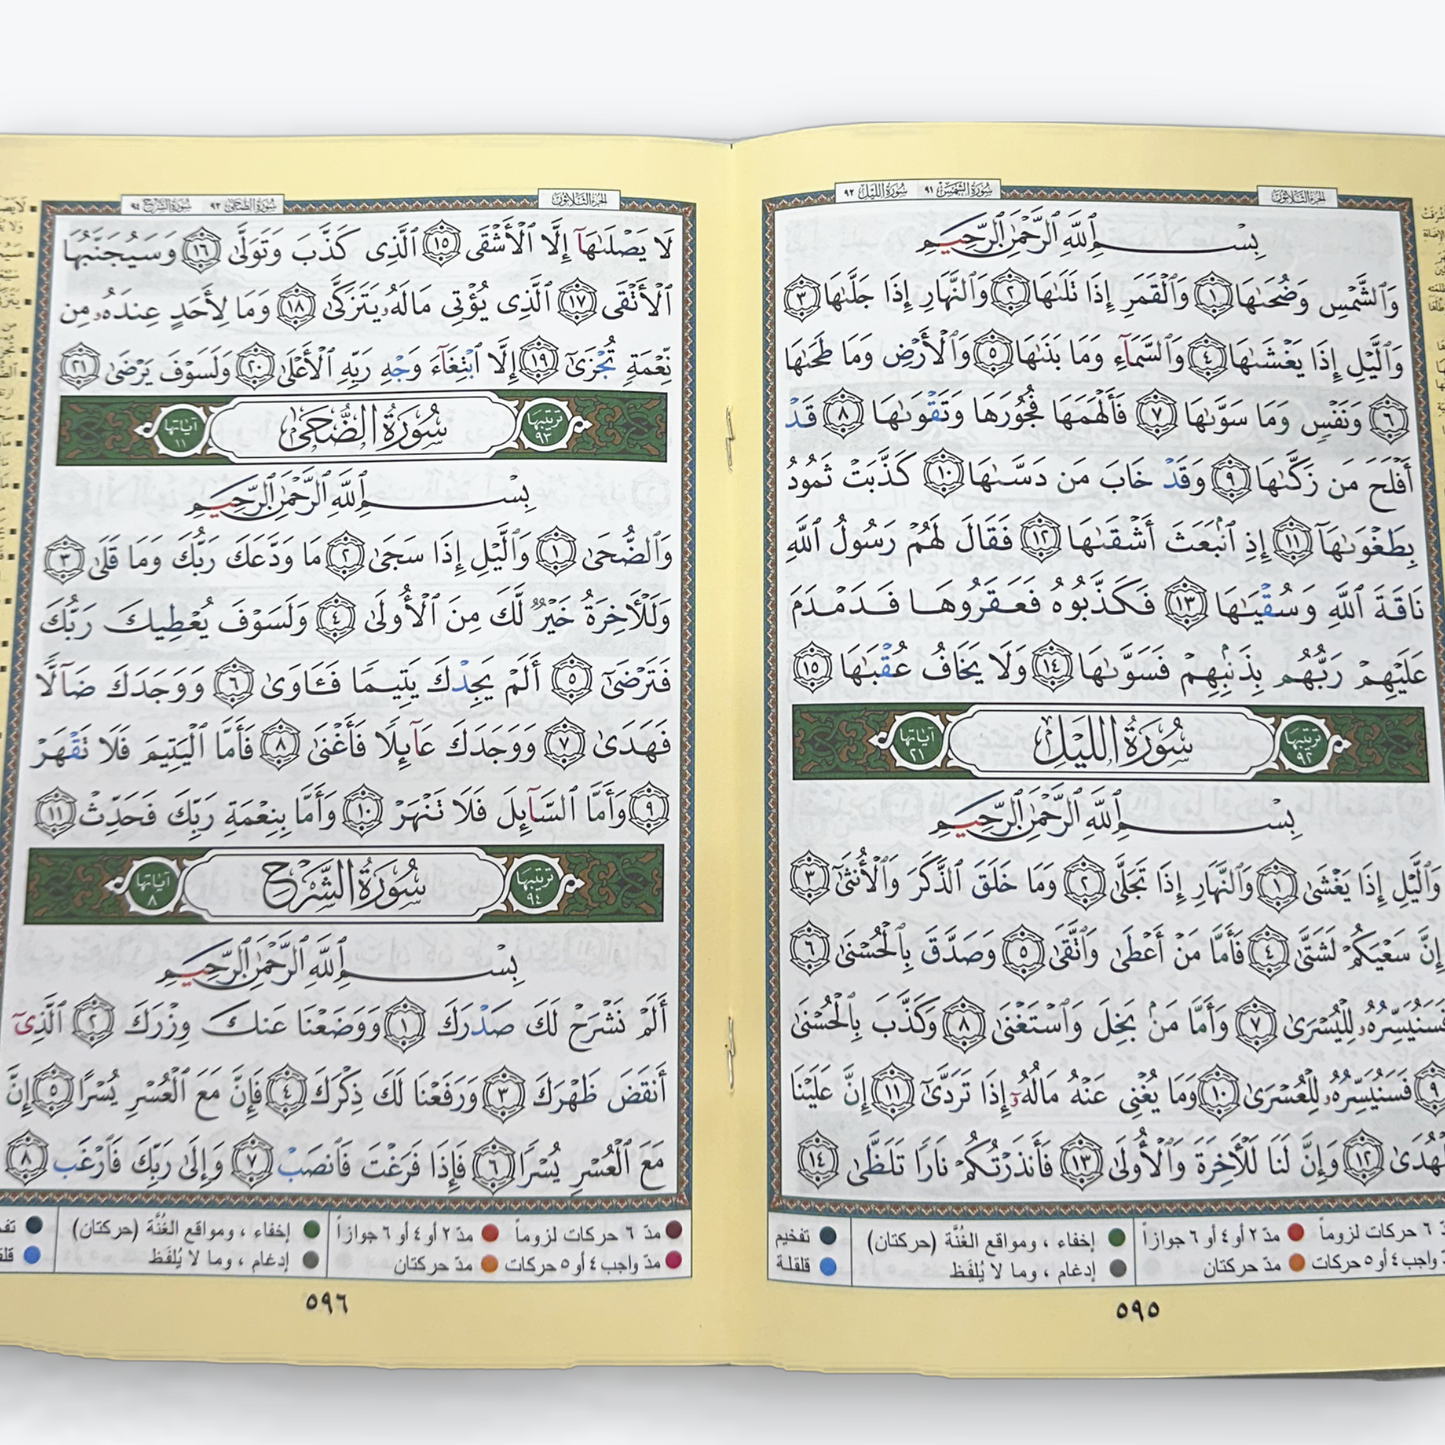 الجزء الثلاثون
سورة الشمس ٩١
سورة الليل ٩٢
بِسْمِ اللَّهِ الرَّحْمَٰنِ الرَّحِيمِ
وَالشَّمْسِ وَضُحَىٰهَا ١ وَالْقَمَرِ إِذَا تَلَىٰهَا ٢ وَالنَّهَارِ إِذَا جَلَّىٰهَا ٣
وَالَّيْلِ إِذَا يَغْشَىٰهَا ٤ وَالسَّمَآءِ وَمَا بَنَىٰهَا ٥ وَالْأَرْضِ وَمَا طَحَىٰهَا
٦ وَنَفْسٍ وَمَا سَوَّىٰهَا ٧ فَأَلْهَمَهَا فُجُورَهَا وَتَقْوَىٰهَا ٨ قَدْ
أَفْلَحَ مَن زَكَّىٰهَا ٩ وَقَدْ خَابَ مَن دَسَّىٰهَا ١٠ كَذَّبَتْ ثَمُودُ
بِطَغْوَىٰهَآ ١١ إِذِ انۢبَعَثَ أَشْقَىٰهَا ١٢ فَقَالَ لَهُمْ رَسُولُ اللَّهِ
نَاقَةَ اللَّهِ وَسُقْيَٰهَا ١٣ فَكَذَّبُوهُ فَعَقَرُوهَا فَدَمْدَمَ
عَلَيْهِمْ رَبُّهُم بِذَنۢبِهِمْ فَسَوَّىٰهَا ١٤ وَلَا يَخَافُ عُقْبَٰهَا ١٥
ترتيبها ٩٢ سُورَةُ اللَّيْلِ آياتها ٢١
بِسْمِ اللَّهِ الرَّحْمَٰنِ الرَّحِيمِ
وَالَّيْلِ إِذَا يَغْشَىٰ ١ وَالنَّهَارِ إِذَا تَجَلَّىٰ ٢ وَمَا خَلَقَ الذَّكَرَ وَالْأُنثَىٰٓ ٣
إِنَّ سَعْيَكُمْ لَشَتَّىٰ ٤ فَأَمَّا مَنْ أَعْطَىٰ وَاتَّقَىٰ ٥ وَصَدَّقَ بِالْحُسْنَىٰ ٦
فَسَنُيَسِّرُهُۥ لِلْيُسْرَىٰ ٧ وَأَمَّا مَنۢ بَخِلَ وَاسْتَغْنَىٰ ٨ وَكَذَّبَ بِالْحُسْنَىٰ
٩ فَسَنُيَسِّرُهُۥ لِلْعُسْرَىٰ ١٠ وَمَا يُغْنِى عَنْهُ مَالُهُۥٓ إِذَا تَرَدَّىٰٓ ١١ إِنَّ عَلَيْنَا
لَلْهُدَىٰ ١٢ وَإِنَّ لَنَا لَلْءَاخِرَةَ وَالْأُولَىٰ ١٣ فَأَنذَرْتُكُمْ نَارًا تَلَظَّىٰ ١٤
مدّ ٦ حركات لزوماً مدّ ٢ أو ٤ أو ٦ جوازاً إخفاء ، ومواقع الغُنَّة (حركتان) تفخيم
مدّ واجب ٤ أو ٥ حركات مدّ حركتان إدغام ، وما لا يُلفَظ قلقلة
٥٩٥
الجزء الثلاثون
سورة الضحى ٩٣
سورة الشرح ٩٤
لَا يَصْلَىٰهَآ إِلَّا الْأَشْقَى ١٥ الَّذِى كَذَّبَ وَتَوَلَّىٰ ١٦ وَسَيُجَنَّبُهَا
الْأَتْقَى ١٧ الَّذِى يُؤْتِى مَالَهُۥ يَتَزَكَّىٰ ١٨ وَمَا لِأَحَدٍ عِندَهُۥ مِن
نِّعْمَةٍ تُجْزَىٰٓ ١٩ إِلَّا ابْتِغَآءَ وَجْهِ رَبِّهِ الْأَعْلَىٰ ٢٠ وَلَسَوْفَ يَرْضَىٰ ٢١
ترتيبها ٩٣ سُورَةُ الضُّحَىٰ آياتها ١١
بِسْمِ اللَّهِ الرَّحْمَٰنِ الرَّحِيمِ
وَالضُّحَىٰ ١ وَالَّيْلِ إِذَا سَجَىٰ ٢ مَا وَدَّعَكَ رَبُّكَ وَمَا قَلَىٰ ٣
وَلَلْءَاخِرَةُ خَيْرٌ لَّكَ مِنَ الْأُولَىٰ ٤ وَلَسَوْفَ يُعْطِيكَ رَبُّكَ
فَتَرْضَىٰٓ ٥ أَلَمْ يَجِدْكَ يَتِيمًا فَـَٔاوَىٰ ٦ وَوَجَدَكَ ضَآلًّا
فَهَدَىٰ ٧ وَوَجَدَكَ عَآئِلًا فَأَغْنَىٰ ٨ فَأَمَّا الْيَتِيمَ فَلَا تَقْهَرْ
٩ وَأَمَّا السَّآئِلَ فَلَا تَنْهَرْ ١٠ وَأَمَّا بِنِعْمَةِ رَبِّكَ فَحَدِّثْ ١١
ترتيبها ٩٤ سُورَةُ الشَّرْحِ آياتها ٨
بِسْمِ اللَّهِ الرَّحْمَٰنِ الرَّحِيمِ
أَلَمْ نَشْرَحْ لَكَ صَدْرَكَ ١ وَوَضَعْنَا عَنكَ وِزْرَكَ ٢ الَّذِىٓ
أَنقَضَ ظَهْرَكَ ٣ وَرَفَعْنَا لَكَ ذِكْرَكَ ٤ فَإِنَّ مَعَ الْعُسْرِ يُسْرًا ٥ إِنَّ
مَعَ الْعُسْرِ يُسْرًا ٦ فَإِذَا فَرَغْتَ فَانصَبْ ٧ وَإِلَىٰ رَبِّكَ فَارْغَب ٨
مدّ ٦ حركات لزوماً مدّ ٢ أو ٤ أو ٦ جوازاً إخفاء ، ومواقع الغُنَّة (حركتان)
مدّ واجب ٤ أو ٥ حركات مدّ حركتان إدغام ، وما لا يُلفَظ
٥٩٦